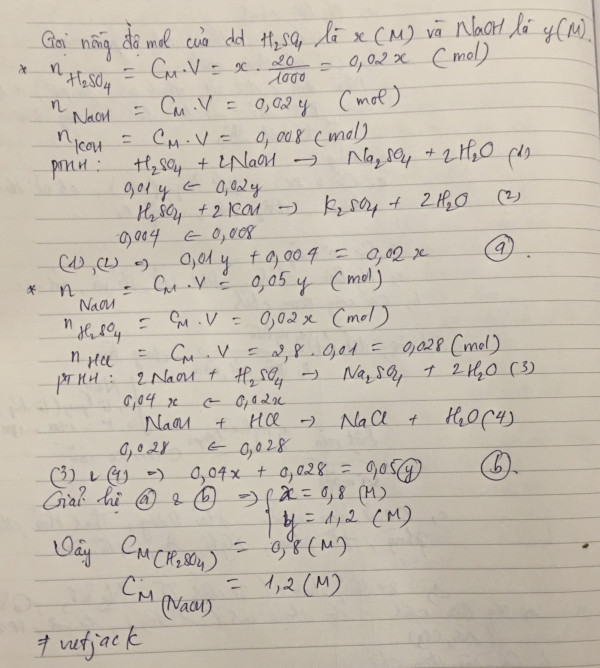 Gọi nồng độ mol của dd H₂SO₄ là x (M) và NaOH là y (M).
* n H₂SO₄ = C_M . V = x . 20/1000 = 0,02x (mol)
n NaOH = C_M . V = 0,02 y (mol)
n KOH = C_M . V = 0,008 (mol)
PTHH : H₂SO₄ + 2NaOH → Na₂SO₄ + 2H₂O (1)
0,01y ← 0,02y
H₂SO₄ + 2KOH → K₂SO₄ + 2H₂O (2)
0,004 ← 0,008
(1), (2) ⇒ 0,01y + 0,004 = 0,02 x (a).
* n NaOH = C_M . V = 0,05 y (mol)
n H₂SO₄ = C_M . V = 0,02x (mol)
n HCl = C_M . V = 2,8 . 0,01 = 0,028 (mol)
PTHH : 2NaOH + H₂SO₄ → Na₂SO₄ + 2H₂O (3)
0,04 x ← 0,02x
NaOH + HCl → NaCl + H₂O (4)
0,028 ← 0,028
(3) & (4) ⇒ 0,04x + 0,028 = 0,05y (b).
Giải hệ (a) & (b) ⇒ { x = 0,8 (M)
y = 1,2 (M)
Vậy C_M (H₂SO₄) = 0,8 (M)
C_M (NaOH) = 1,2 (M)